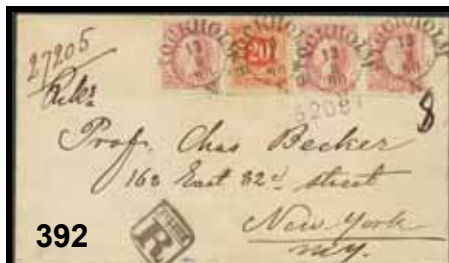 STOCKHOLM STOCKHOLM STOCKHOLM STOCKHOLM
20
27205
Prof. Chas Becker
168 East 82d street
New York
N.Y.
8
R
392